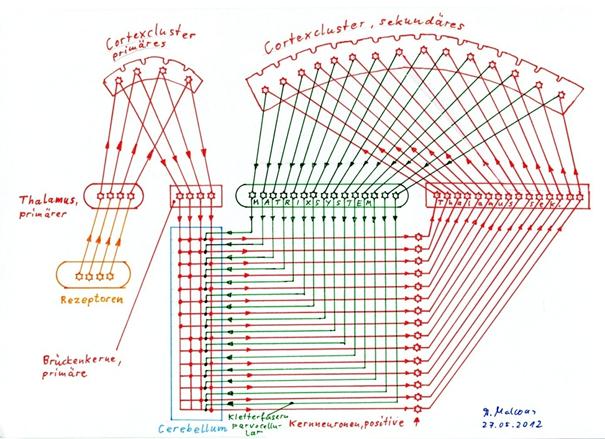 Cortexcluster
primäres
Cortexcluster, sekundäres
Thalamus,
primärer
MATRIXSYSTEM
Thalamus, sek.
Rezeptoren
Brückenkerne,
primäre
Cerebellum
Kletterfasern
parvocellu-
lar
Kernneuronen, positive
27.05.2012